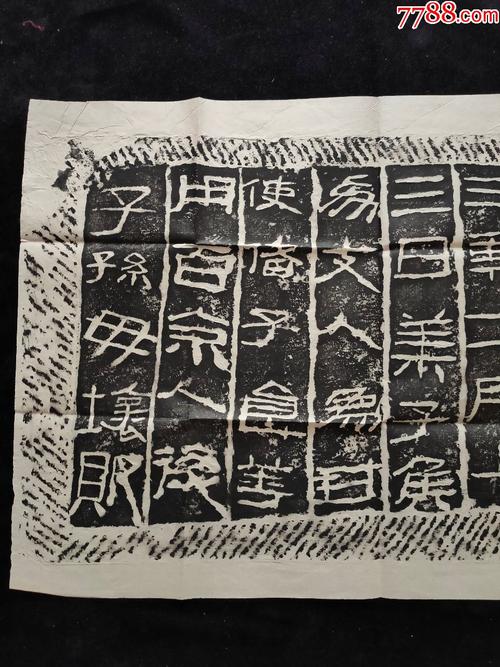 7788.com
三年二月十
三日萊子矦
為支人為封
使偖子食等
用百余人後
子孫毋壞敗